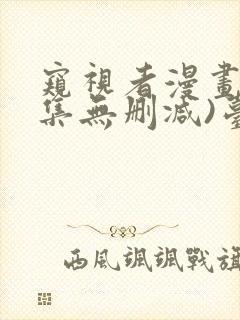 窺視者漫畫
集無刪減)臺
西風颯颯戰旗